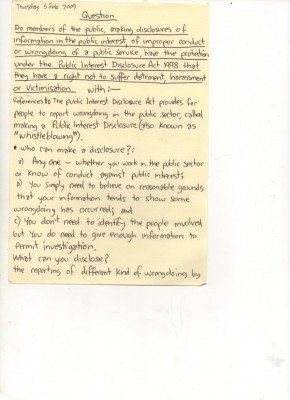 Thursday 5 Feb 2009
Question
Do members of the public, making disclosures of
information in the public interest, of improper conduct
or wrongdoing, of a public service, have the protection
under the Public Interest Disclosure Act 1998 that
they have a right not to suffer detriment, harassment
or Victimisation. with:-
References to The public Interest Disclosure Act provides for
people to report wrongdoing in the public sector, called
making a Public Interest Disclosure (also known as
"whistleblowing").
• Who can make a disclosure?:
a) Any one - whether you work in the public Sector
or know of conduct against public interest;
B) You simply need to believe on reasonable grounds
that your information tends to show some
wrongdoing has occurred; and
c) You don't need to identify the people involved
but You do need to give enough information to
permit investigation.
What can you disclose?
the reporting of different kind of wrongdoing by